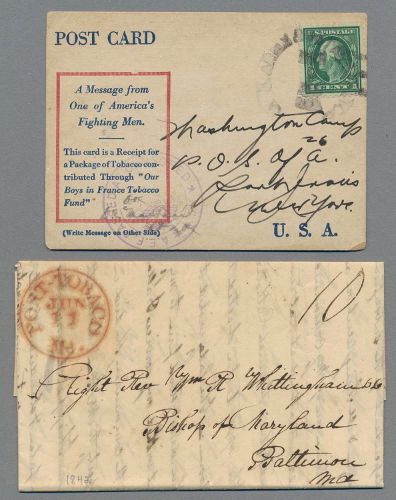 POST CARD
U.S. POSTAGE
1 CENT 1
A Message from
One of America's
Fighting Men.
This card is a Receipt for
a Package of Tobacco con-
tributed Through "Our
Boys in France Tobacco
Fund"
(Write Message on Other Side)
A.E.F.
Washington Camp
26
P. O. S. of A.
New York
U. S. A.
PORT-TOBACO
JUN
Md.
10
Right Rev Wm R Whittingham
Bishop of Maryland
Baltimore
Md
1842